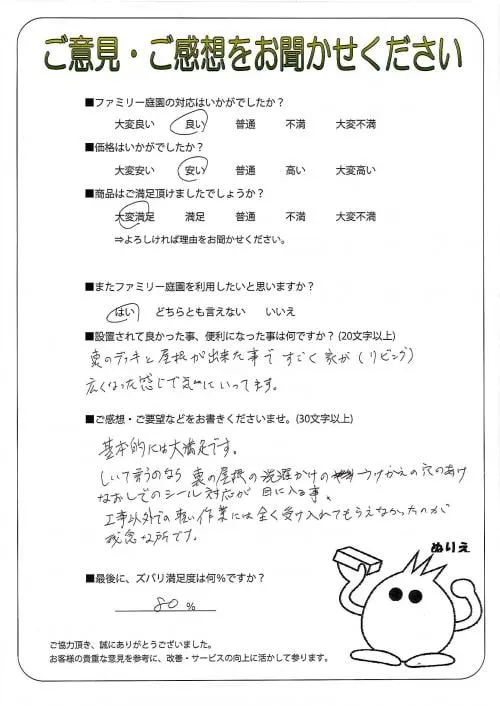 ご意見・ご感想をお聞かせください
■ファミリー庭園の対応はいかがでしたか？
大変良い 良い 普通 不満 大変不満
■価格はいかがでしたか？
大変安い 安い 普通 高い 大変高い
■商品はご満足頂けましたでしょうか？
大変満足 満足 普通 不満 大変不満
⇒よろしければ理由をお聞かせください。
■またファミリー庭園を利用したいと思いますか？
はい どちらとも言えない いいえ
■設置されて良かった事、便利になった事は何ですか？(20文字以上)
裏のデッキと屋根が出来た事で すごく 家が(リビング)
広くなった感じで気にいってます。
■ご感想・ご要望などをお書きくださいませ。(30文字以上)
基本的には大満足です。
しいて言うのなら 裏の屋根の洗濯かけの つけかえの穴のあけ
なおしでのシール対応が 目に入る事。
工事以外での軽い作業には全く受け入れてもらえなかったのが
残念な所です。
ぬりえ
■最後に、ズバリ満足度は何％ですか？
80 %
ご協力頂き、誠にありがとうございました。
お客様の貴重な意見を参考に、改善・サービスの向上に活かして参ります。